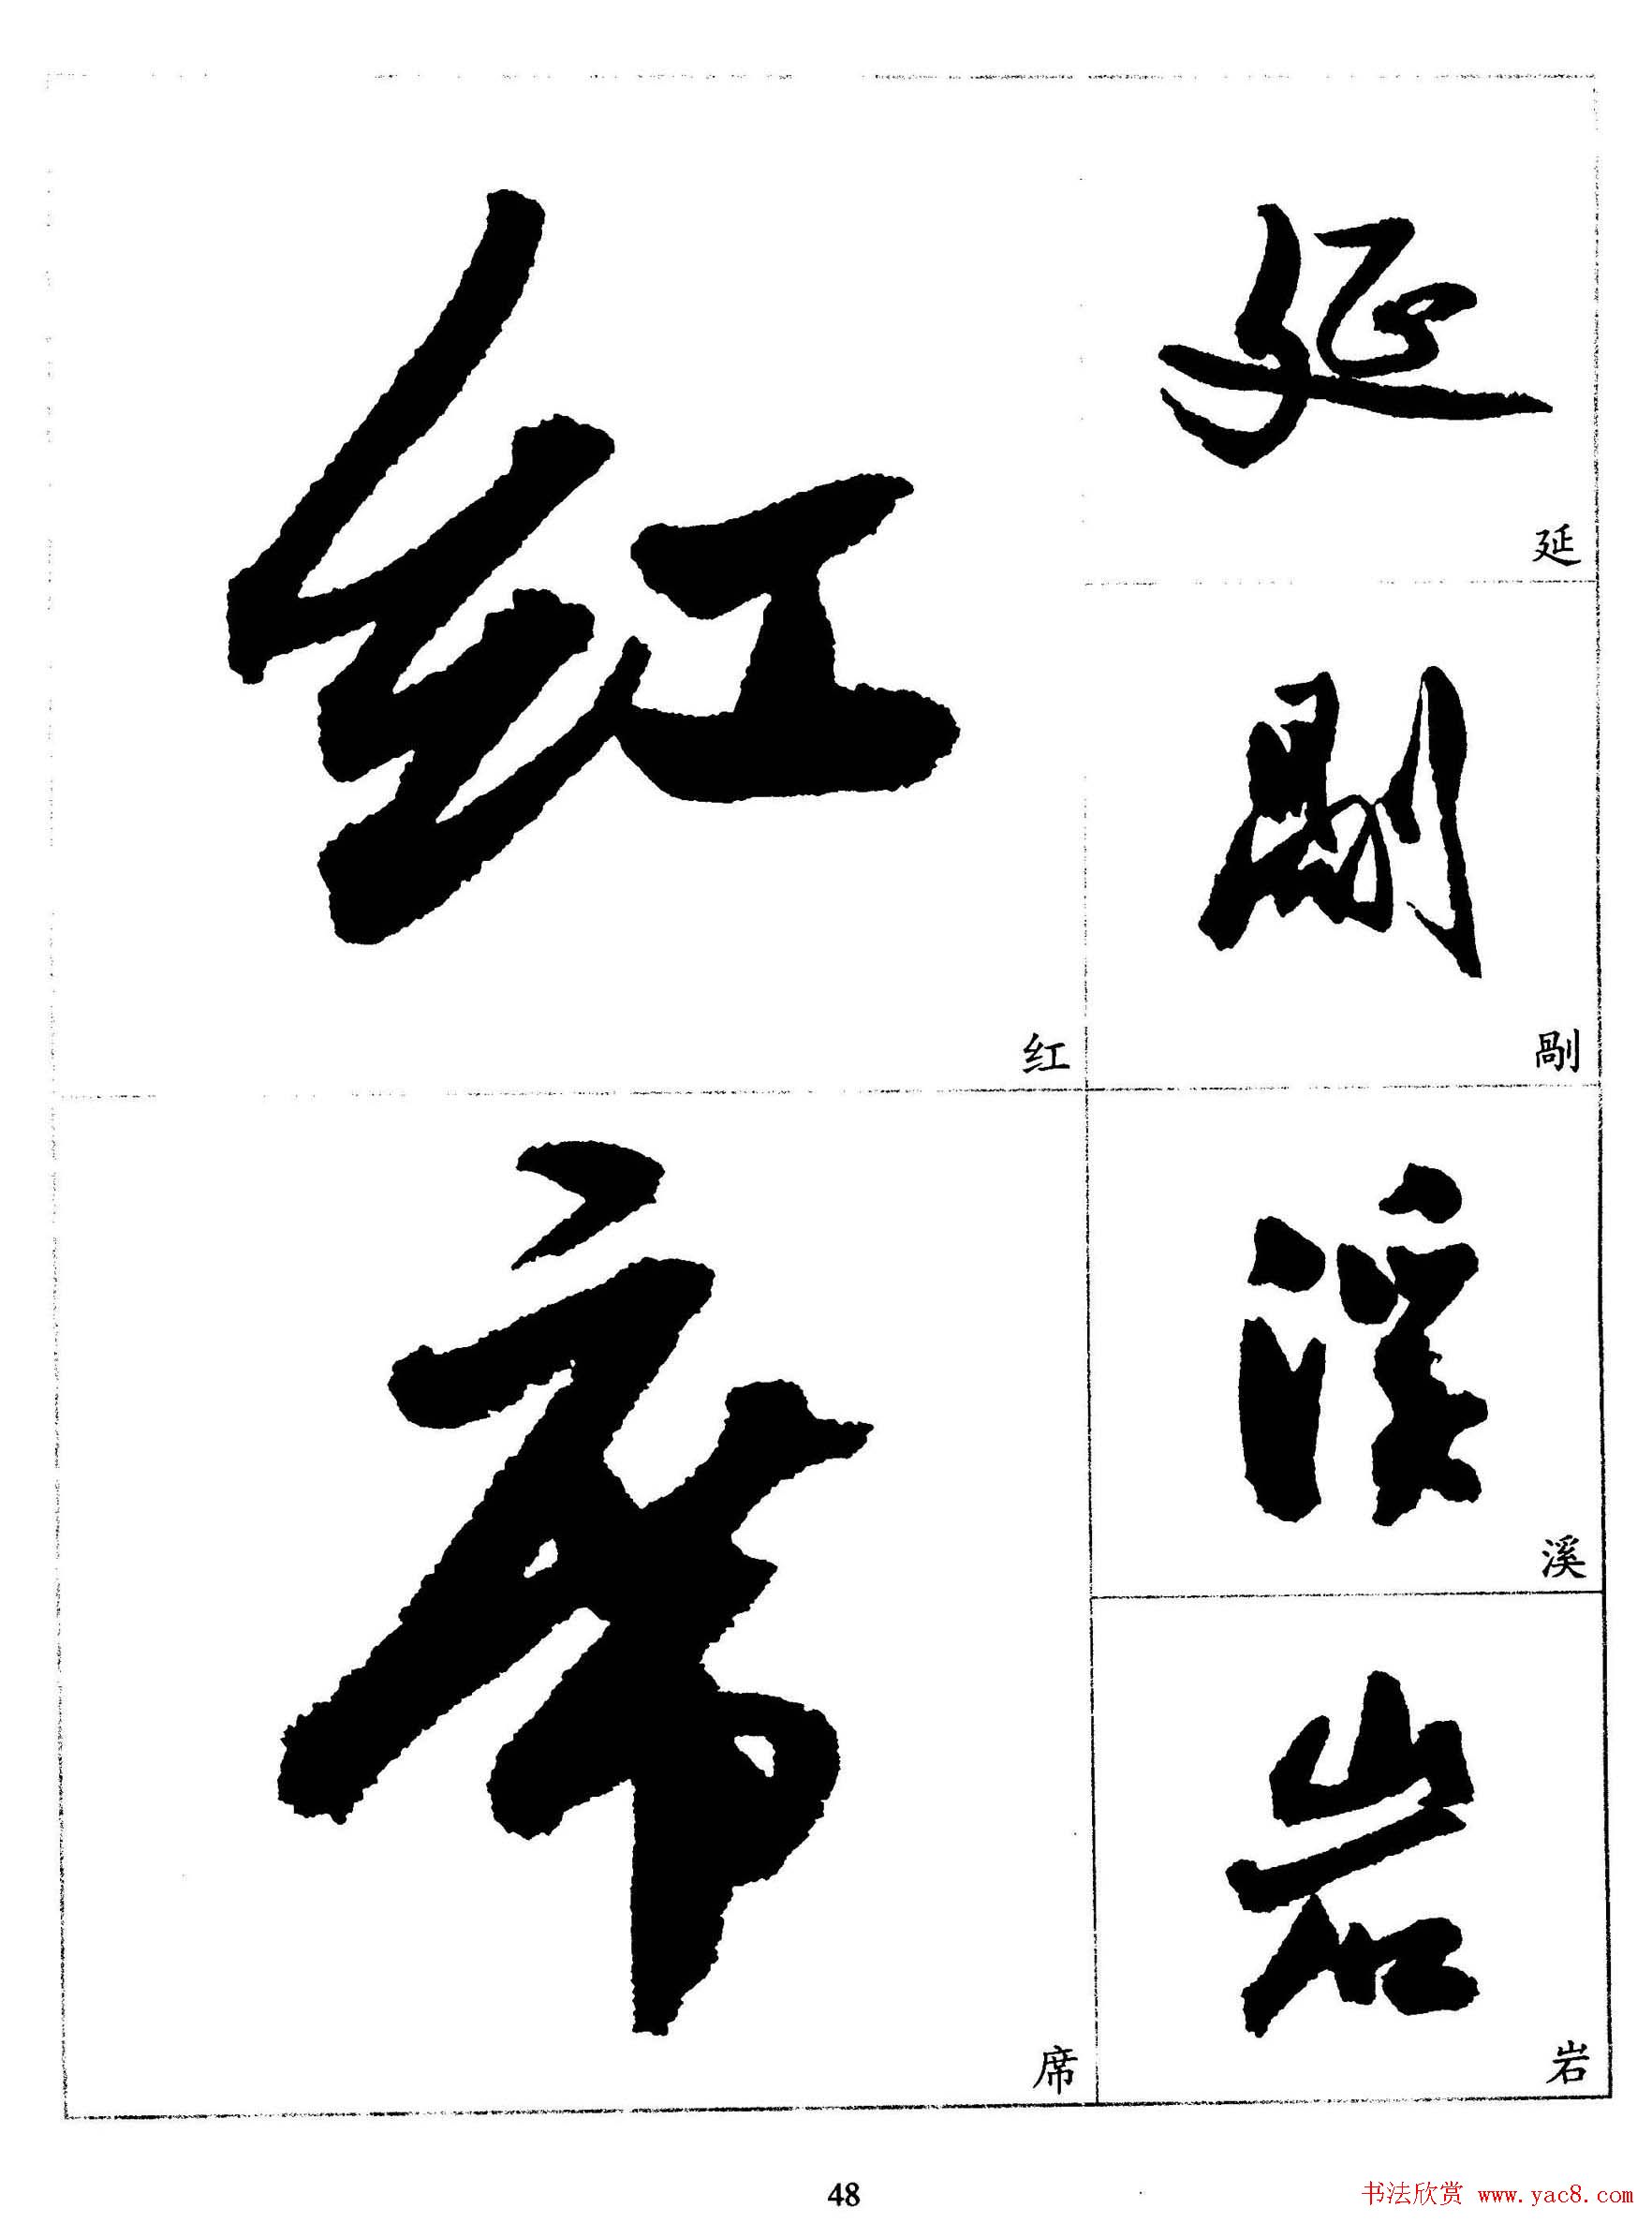 延
延
剮
剮
溪
溪
岩
岩
红
红
席
席
48
书法欣赏 www.yac8.com